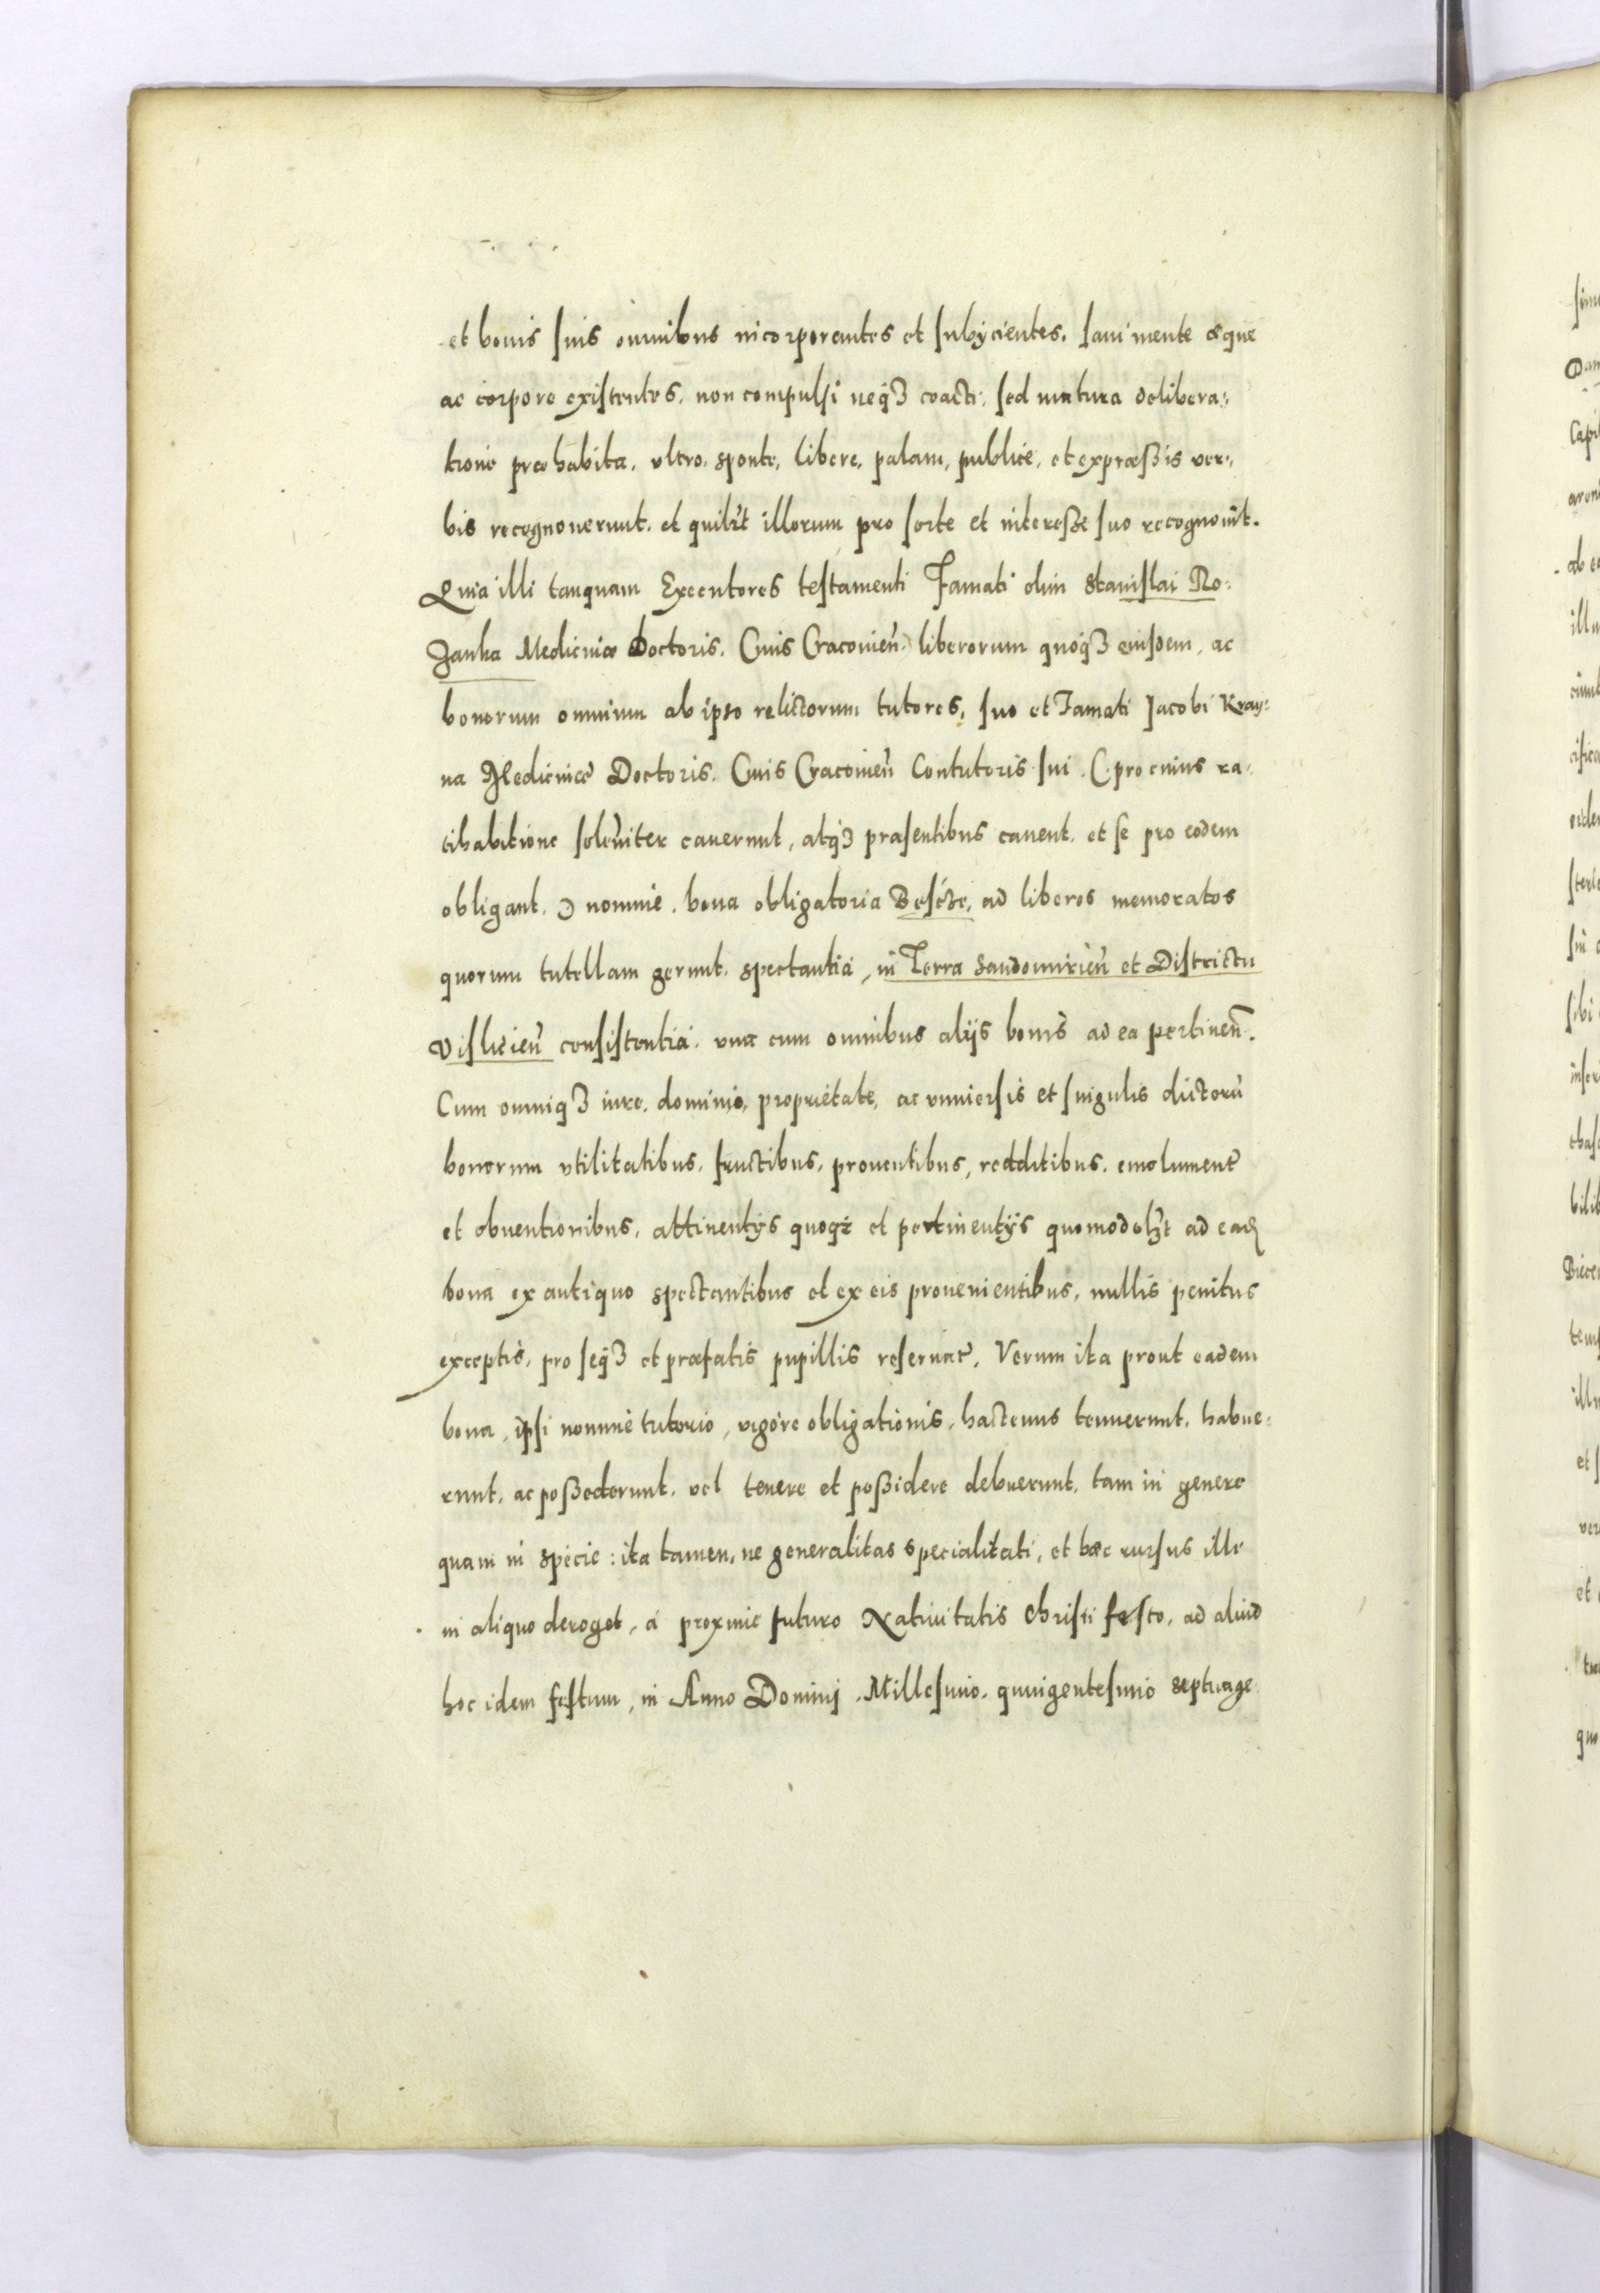 et bonis suis omnibus incorporantes et subÿcientes. sani mente æque
ac corpore existentes. non compulsi neq3 coacti. sed matura delibera:
tione præhabita. vltro. sponte, libere, palam, publice, et expræssis ver:
bis recognouerunt. et quilibet illorum pro sorte et interesse suo recognouit.
Quia illi tanquam Executores testamenti Famati olim Stanislai Ro:
zanka Medicinæ Doctoris. Ciuis Cracouien̄. liberorum quoq3 eiusdem, ac
bonorum omnium ab ipso relictorum tutores, suo et Famati Jacobi Kray:
na Medicinæ Doctoris. Ciuis Cracouien̄ Contutoris sui. (pro cuius ra:
tihabitione solenniter cauerunt, atq3 præsentibus cauent. et se pro eodem
obligant.) nomine. bona obligatoria ad liberos memoratos
quorum tutellam gerunt. spectantia, in Terra Sandomirien̄ et Districtu
Vislicien̄ consistentia. vna cum omnibus alijs bonis ad ea pertinen̄.
Cum omniq3 iure. dominio, proprietate, ac vniuersis et singulis dictorū
bonorum vtilitatibus. fructibus, prouentibus, redditibus. emolument
et obuentionibus, attinentÿs quoq3 et pertinentÿs quomodolibet ad ead
bona ex antiquo spectantibus et ex eis prouenientibus, nullis penitus
exceptis, pro seq3 et præfatis pupillis reseruat. Verum ita prout eadem
bona, ipsi nomine tutorio, vigore obligationis, hactenus tenuerunt. habue:
runt. ac possederunt. vel tenere et possidere debuerunt, tam in genere
quam in specie: ita tamen, ne generalitas specialitati, et hæc rursus illi
in aliquo deroget, a proxime futuro Natiuitatis Christi festo, ad aliud
hoc idem festum, in Anno Dominj. Millesimo. quingentesimo septuage